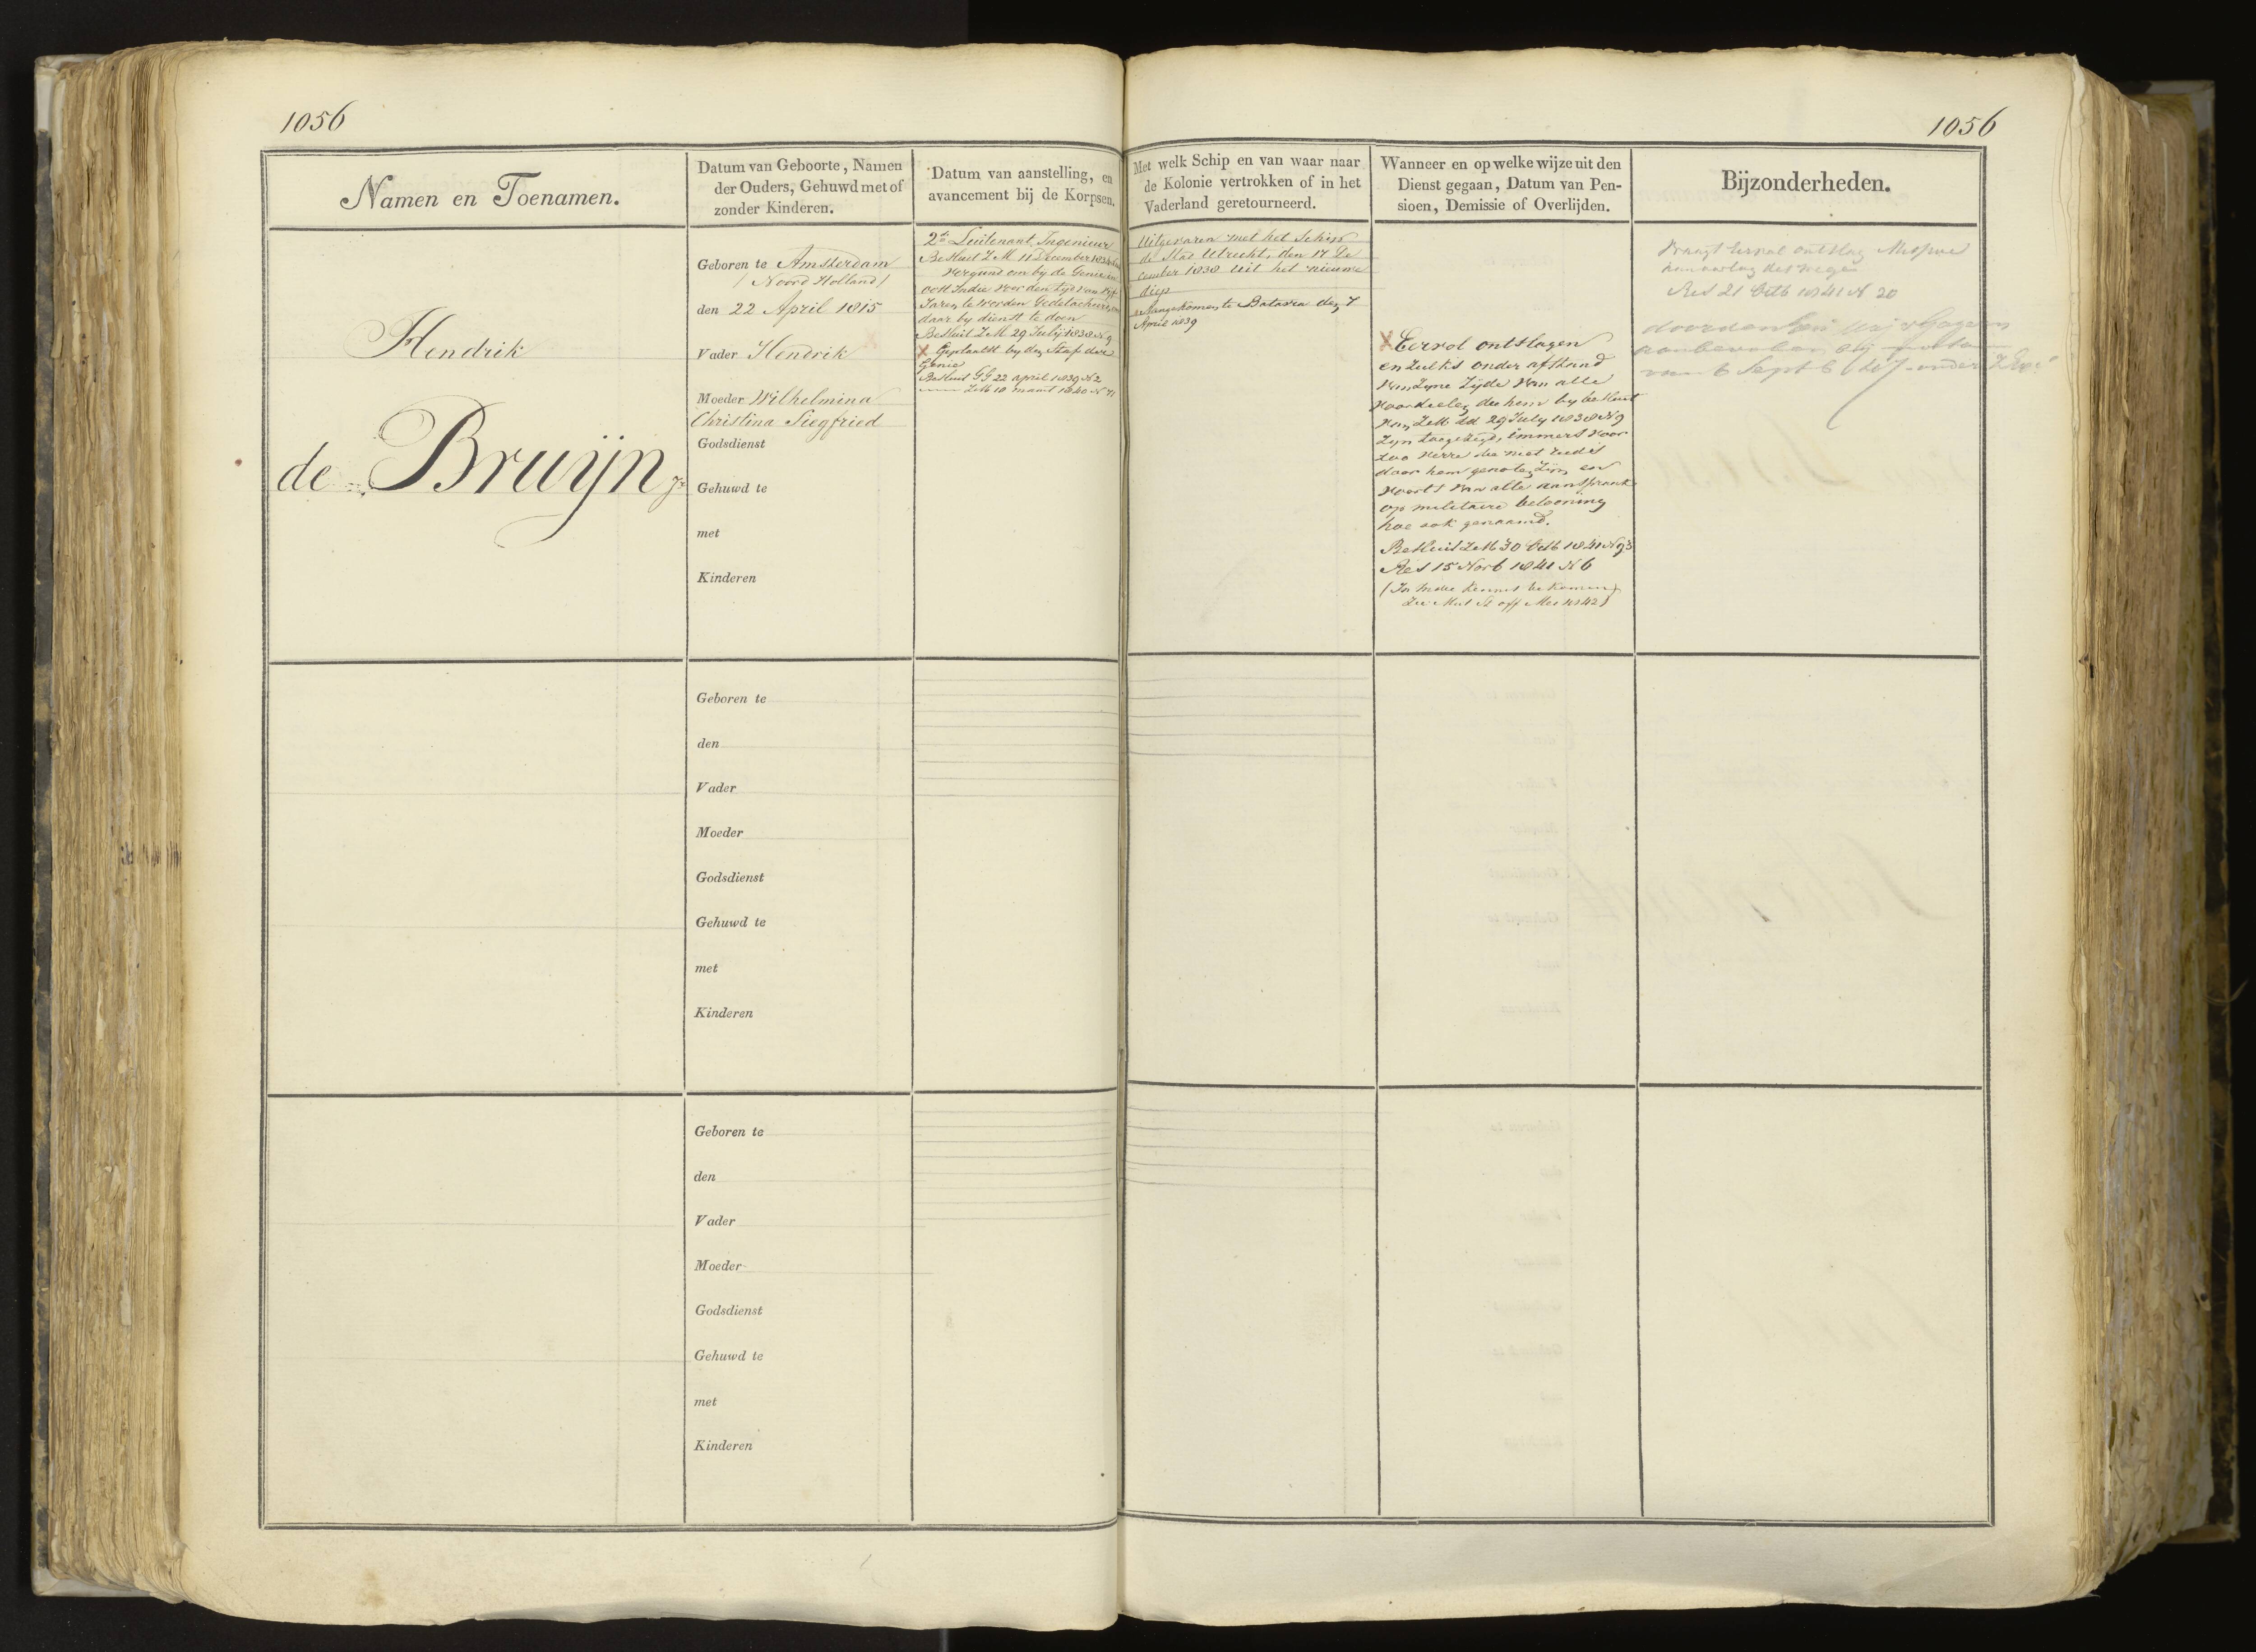 1056
1056
Namen en Toenamen.
Datum van Geboorte, Namen
der Ouders, Gehuwd met of
zonder Kinderen.
Datum van aanstelling, en
avancement bij de Korpsen.
Met welk Schip en van waar naar
de Kolonie vertrokken of in het
Vaderland geretourneerd.
Wanneer en op welke wijze uit den
Dienst gegaan, Datum van Pen-
sioen, Demissie of Overlijden.
Bijzonderheden.
Hendrik
de Bruijn Jr
Geboren te Amsterdam
/ Noord Holland /
den 22 April 1815
Vader Hendrik
Moeder Wilhelmina
Christina Siegfried
Godsdienst
Gehuwd te
met
Kinderen
2de Luitenant Ingenieur
Besluit Z M 11 December 1834
vergund om by de Genie in
Oost Indie voor den tyd van vyf
Jaren te worden Gedetacheerd, om
daar by dienst te doen
Besluit Z M 29 July 1838 N 9
X Geplaatst by den Staf der
Genie
Besluit GG 22 april 1839 N 2
ZM 18 maart 1840 N 71
Uitgevaren met het Schip
de Stad Utrecht, den 17 De
cember 1838 uit het nieuwe
diep
Aangekomen te Batavia den 7
April 1839
X Eervol ontslagen
en zulks onder afstand
van zyne zyde van alle
voordeelen die hem by besluit
van ZM dd 29 July 1838 N 9
zyn toegezegd, immers voor
zoo verre die niet reeds
door hem genoten zyn, en
voorts van alle aanspraak
op militaire belooning
hoe ook genaamd.
Besluit ZM 30 Octb 1841 N 93
Res 15 Novb 1841 N 6
(In Indie kennis bekomen
zie Mut St off Mei 1842)
vraagt eervol ontslag
Res 21 Octb 1841 N 20
van 6 Sept
Geboren te
den
Vader
Moeder
Godsdienst
Gehuwd te
met
Kinderen
Geboren te
den
Vader
Moeder
Godsdienst
Gehuwd te
met
Kinderen